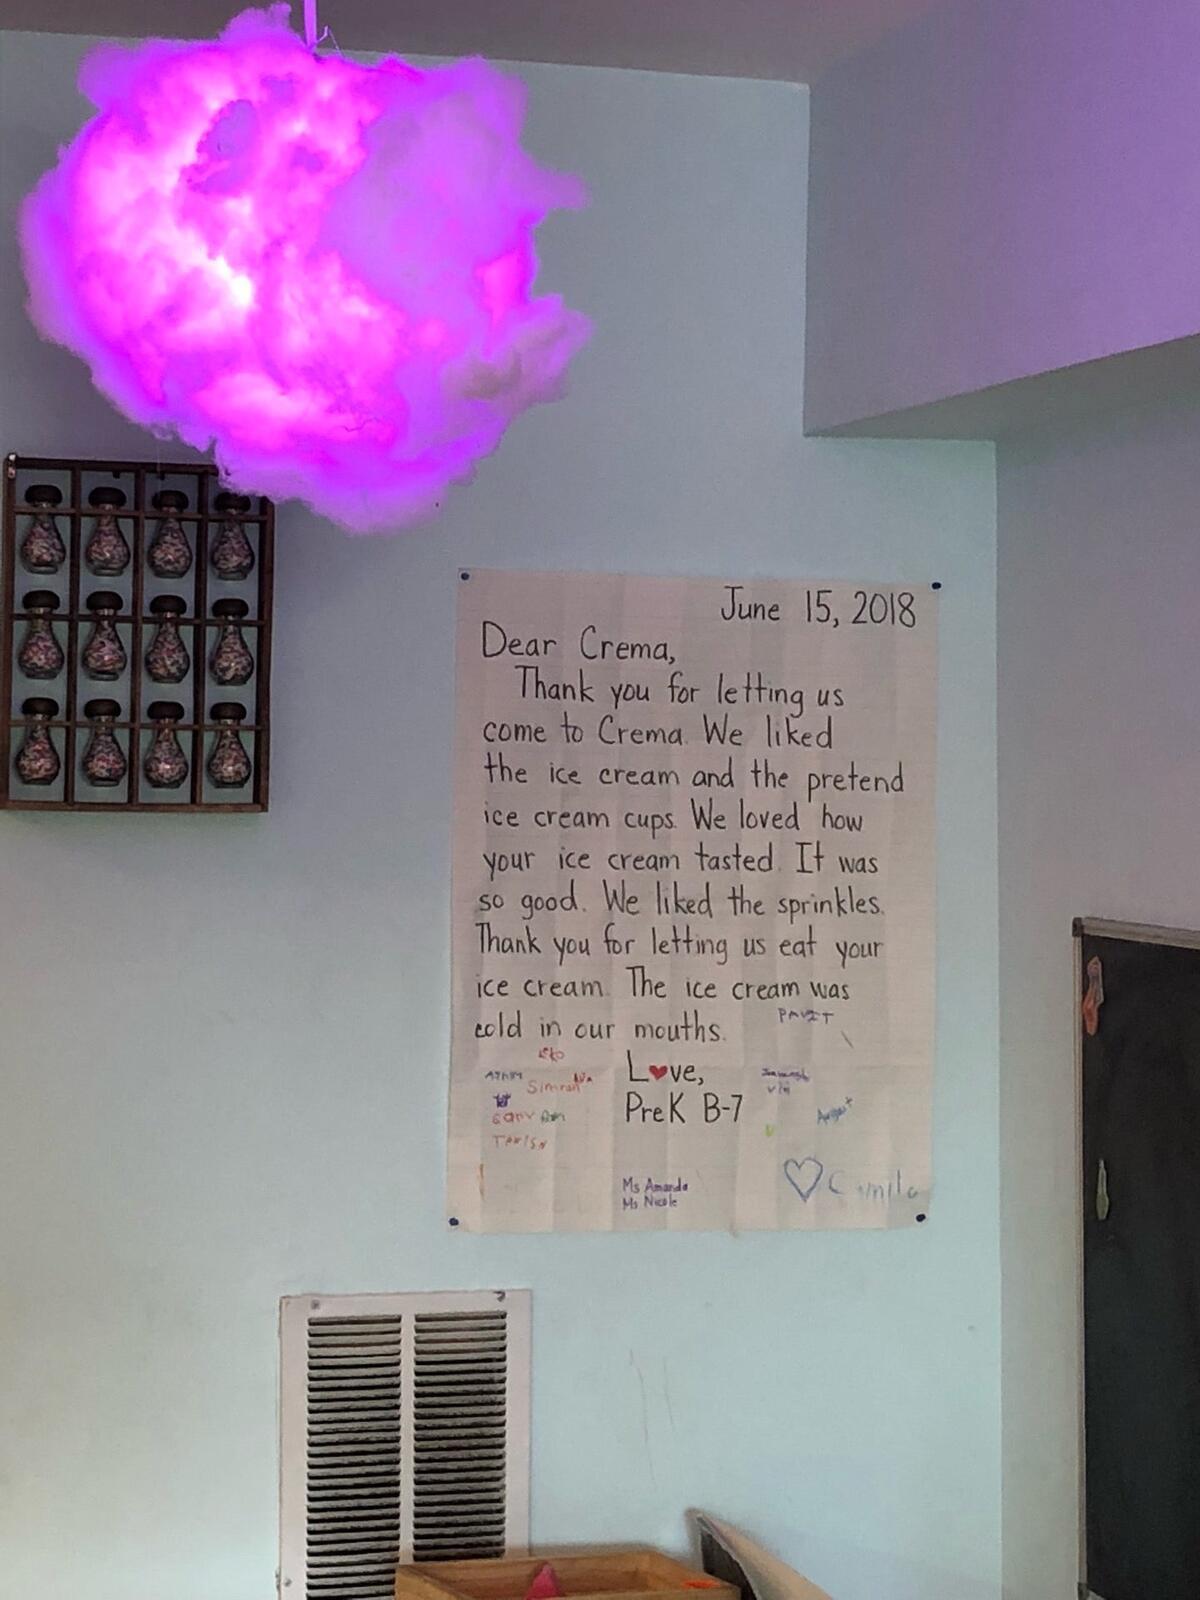 June 15, 2018
Dear Crema,
Thank you for letting us
come to Crema. We liked
the ice cream and the pretend
ice cream cups. We loved how
your ice cream tasted. It was
so good. We liked the sprinkles.
Thank you for letting us eat your
ice cream. The ice cream was
cold in our mouths.
PAVIT
Love,
Simran
PreK B-7
Ms Amanda
Ms Nicole
Camila